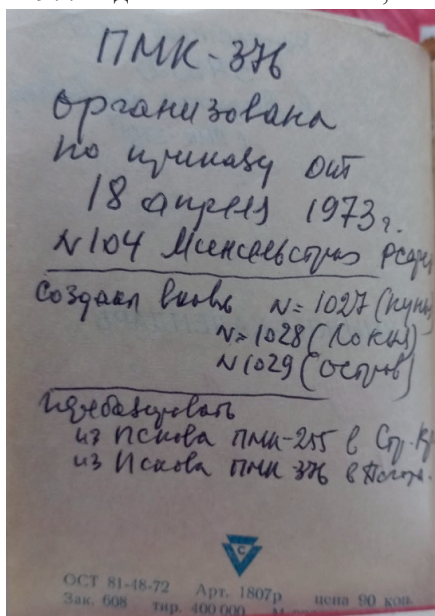 ПМК-376
организована
по приказу от
18 апреля 1973г.
N104 Минсельстроя РСФСР
Создал вновь N=1027 (Кунья)
N=1028 (Локня)
N1029 (Остров)
из Пскова ПМК-255 в Стр. Кр
из Пскова ПМК 376 в
С
ОСТ 81-48-72 Арт. 1807р цена 90 коп.
Зак. 608 тир. 400 000